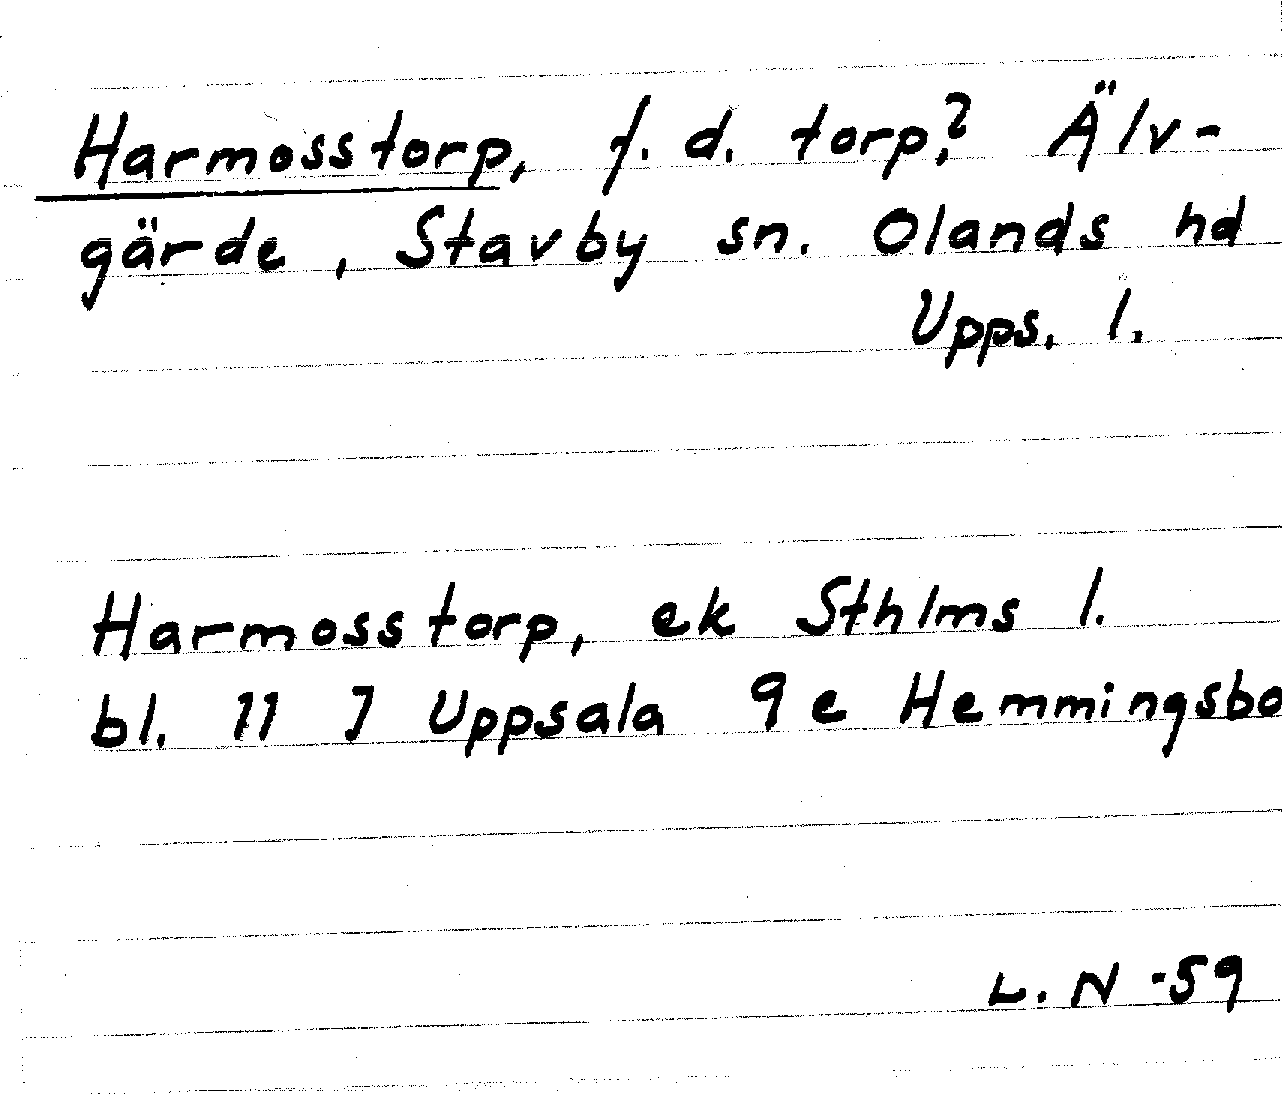 Harmosstorp, f. d. torp? Älv-
gärde, Stavby sn. Olands hd
Upps. l.
Harmosstorp, ek Sthlms l.
bl. 11 J Uppsala 9e Hemmingsbo
L. N -59